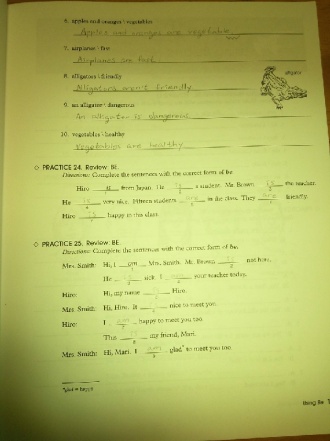 6. apples and oranges \ vegetables
Apples and oranges are vegetable
7. airplanes \ fast
Airplanes are fast.
8. alligators \ friendly
Alligators aren't friendly
alligator
9. an alligator \ dangerous
An alligator is dangerous
10. vegetables \ healthy
Vegetables are healthy
PRACTICE 24. Review: BE.
Directions: Complete the sentences with the correct form of be.
Hiro is from Japan. He is a student. Mr. Brown is the teacher.
He is very nice. Fifteen students are in the class. They are friendly.
Hiro is happy in this class.
PRACTICE 25. Review: BE.
Directions: Complete the sentences with the correct form of be.
Mrs. Smith: Hi, I am Mrs. Smith. Mr. Brown is not here.
He is sick. I your teacher today.
Hiro: Hi, my name Hiro.
Mrs. Smith: Hi, Hiro. It nice to meet you.
Hiro: I am happy to meet you too.
This is my friend, Mari.
Mrs. Smith: Hi, Mari. I am glad* to meet you too.
*glad = happy
Using Be